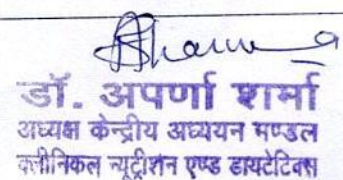 डॉ. अपर्णा शर्मा
अध्यक्ष केन्द्रीय अध्ययन मण्डल
क्लीनिकल न्यूट्रीशन एण्ड डायटेटिक्स